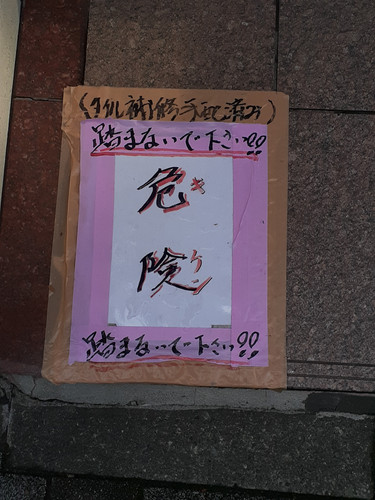 (タイル補修手配済み)
踏まないで下さい!!
危キ
険ケン
踏まないで下さい!!